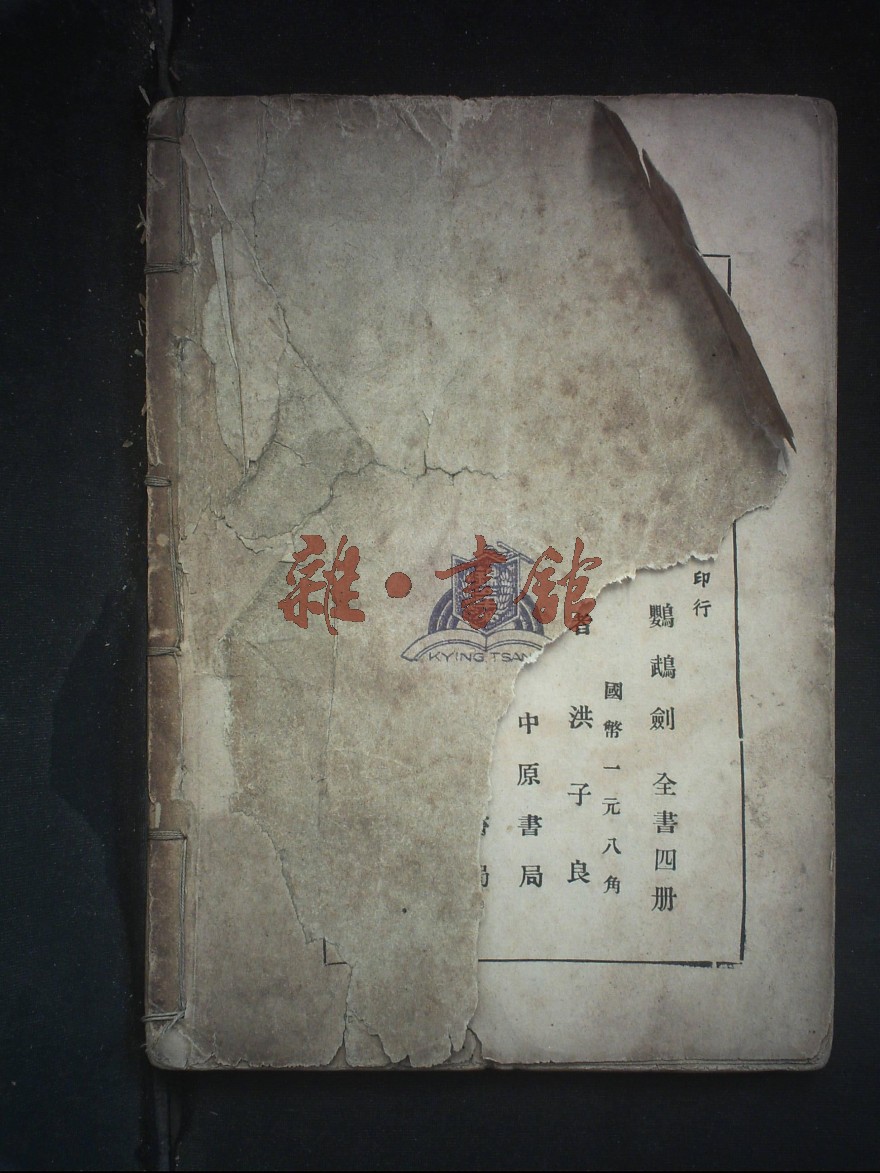 印行
鸚鵡劍 全書四册
國幣一元八角
者 洪子良
中原書局
書局
雜·書館
KYING TSAN